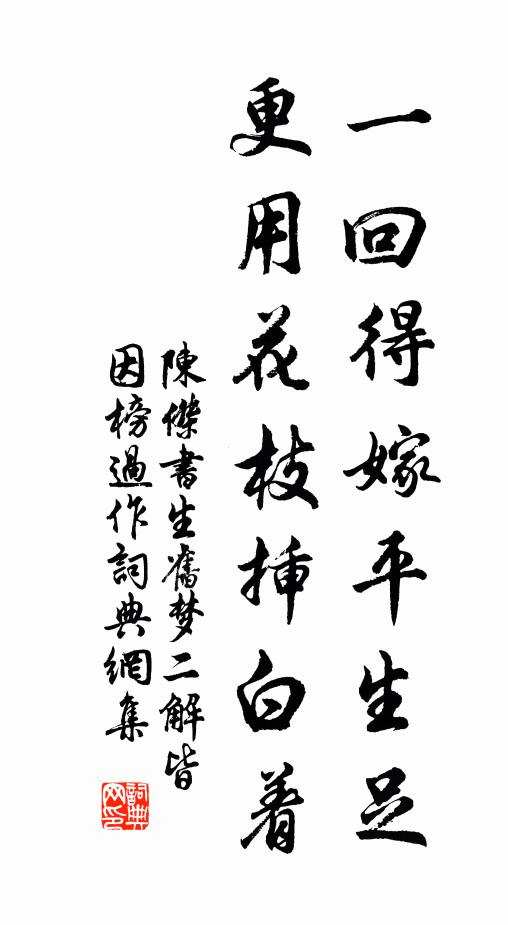 一回得嫁平生足
更用花枝插白着
陳傑書生舊梦二解皆
因榜過作詞典網集
詞典网印